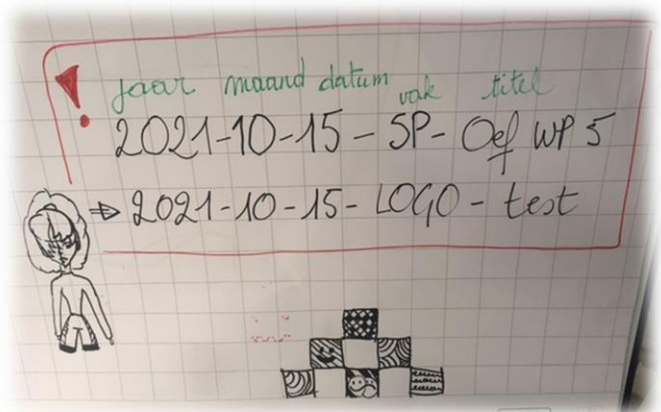 !
jaar maand datum vak titel
2021-10-15 - SP - Oef WP 5
⇒ 2021-10-15 - LOGO - test